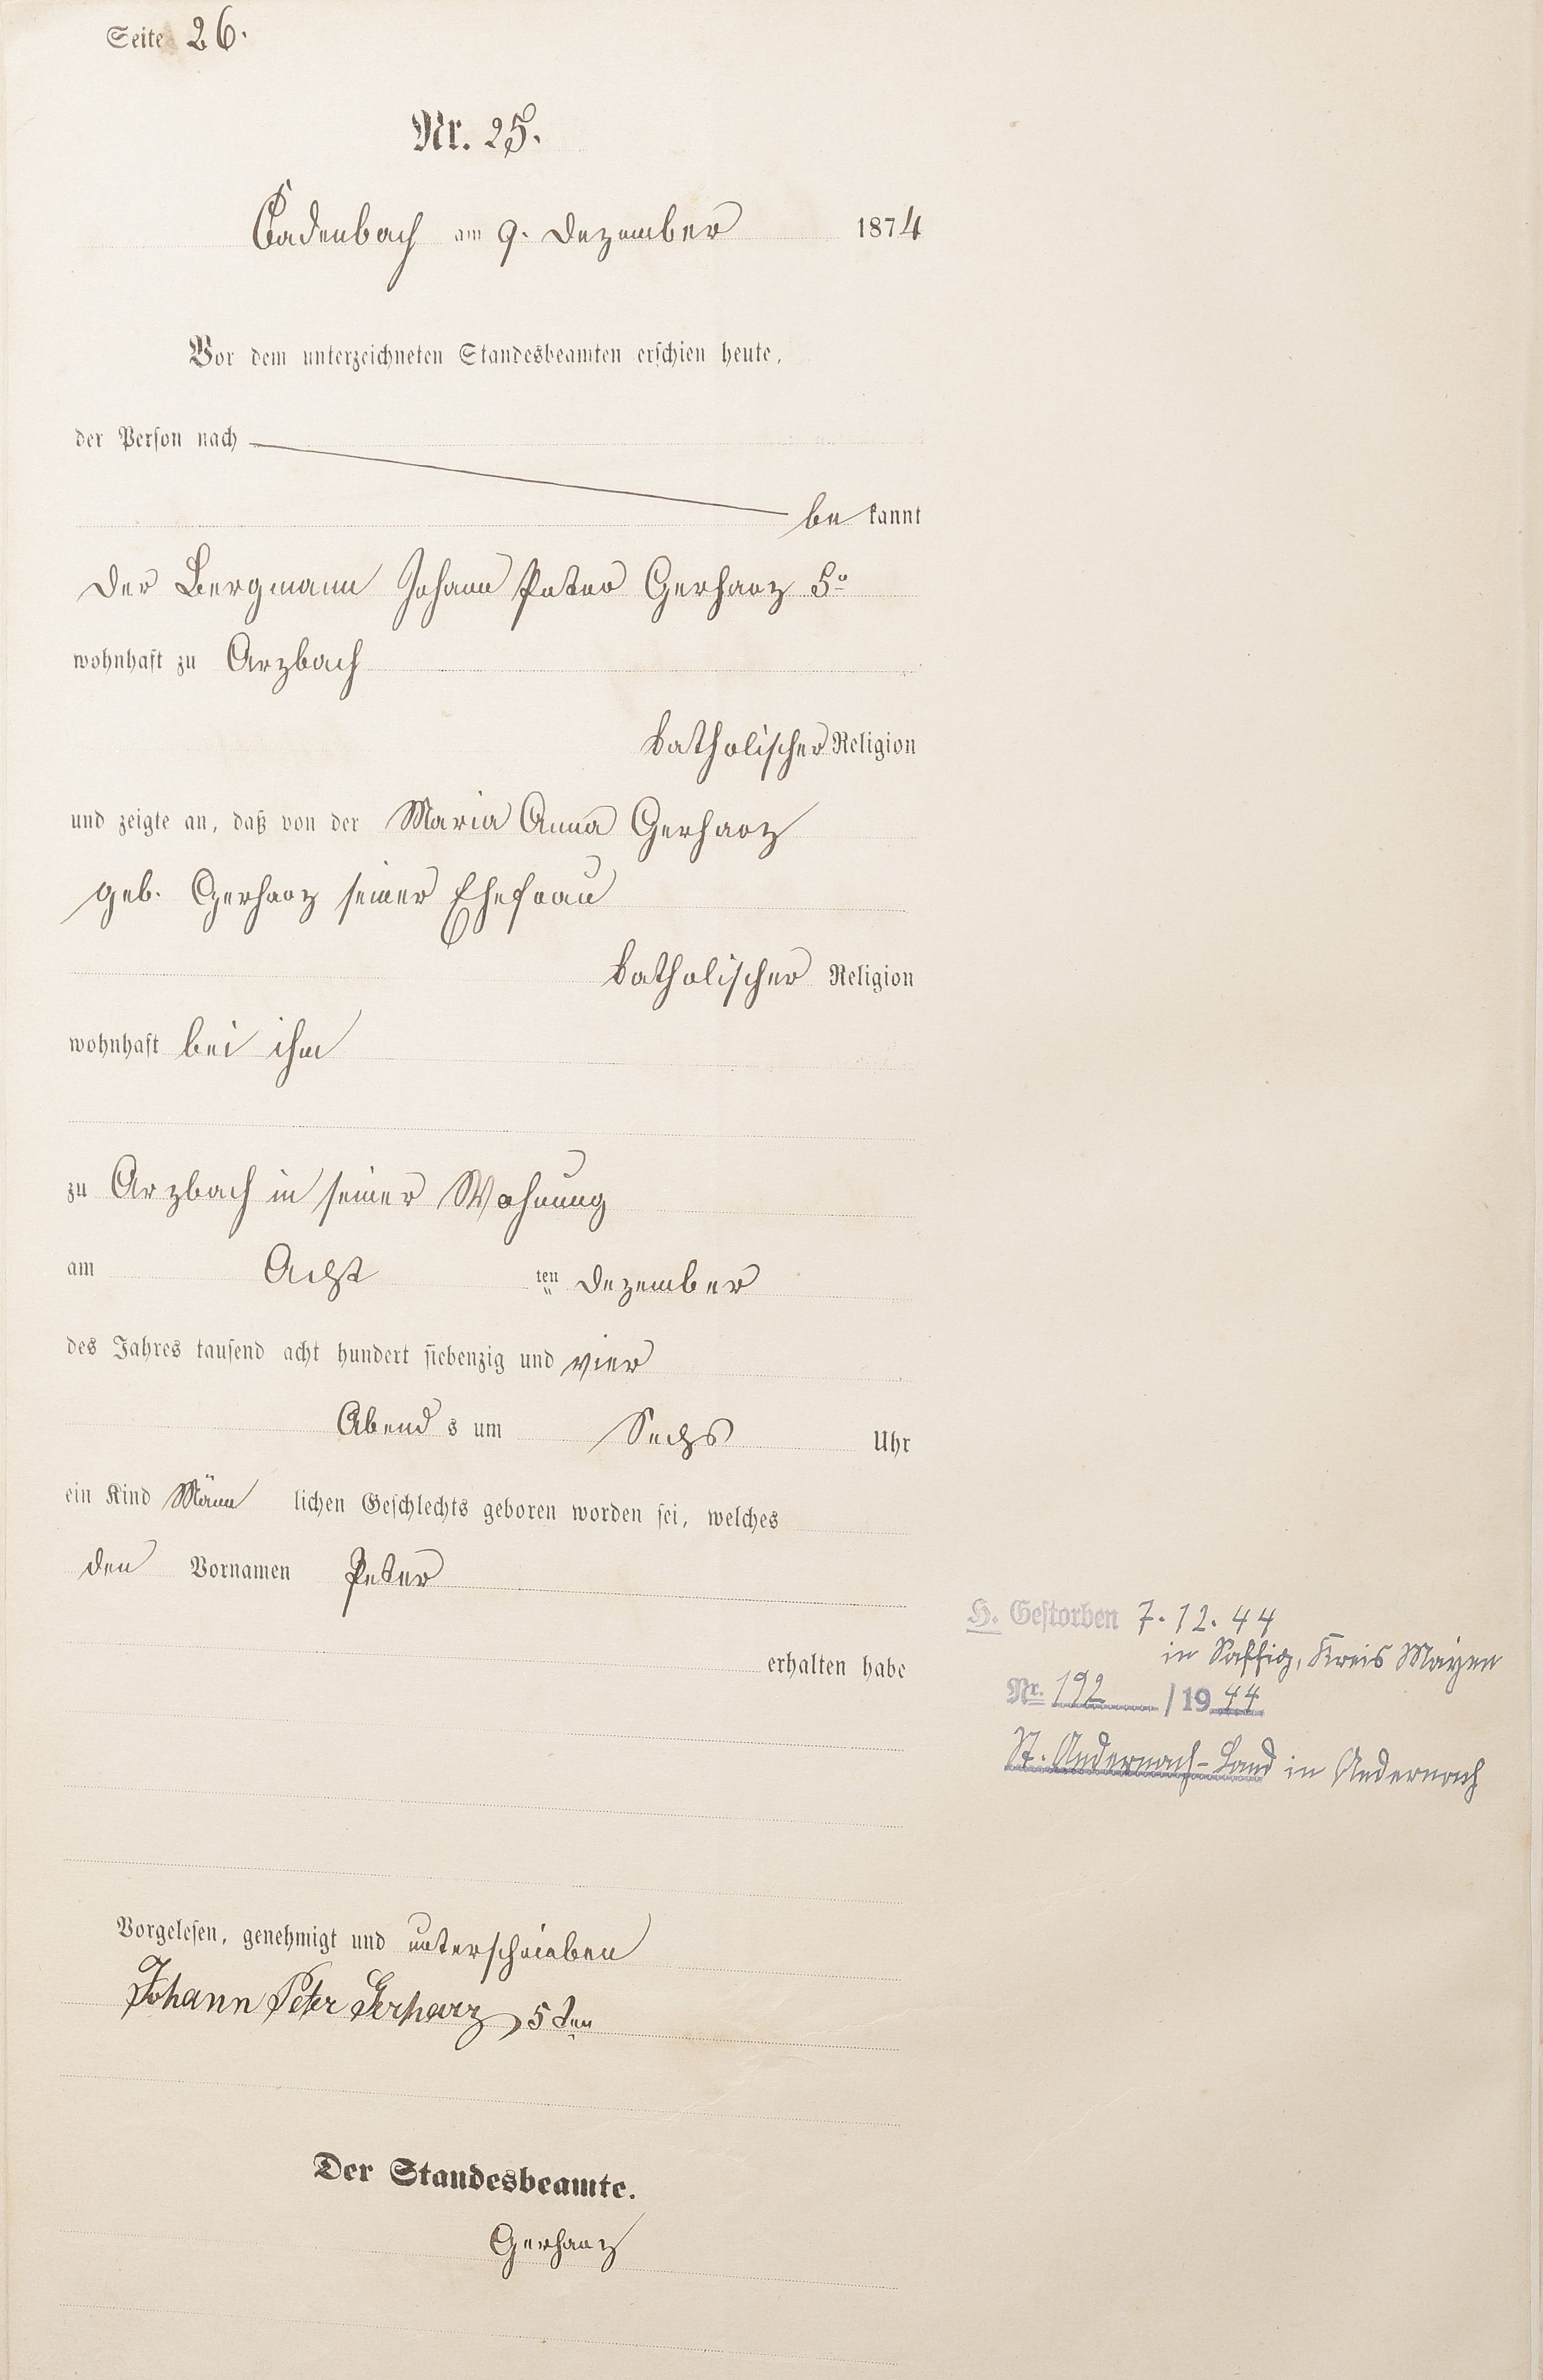 Seite 26.
Nr. 25.
Cadenbach am 9. Dezember 1874
Vor dem unterzeichneten Standesbeamten erschien heute,
der Person nach
be kannt
der Bergmann Johann Peter Gerharz 5º
wohnhaft zu Arzbach
katholischer Religion
und zeigte an, daß von der Maria Anna Gerharz
geb. Gerharz seiner Ehefrau
katholischer Religion
wohnhaft bei ihm
zu Arzbach in seiner Wohnung
am Acht ten Dezember
des Jahres tausend acht hundert siebenzig und vier
Abend s um Sechs Uhr
ein Kind Männ lichen Geschlechts geboren worden sei, welches
den Vornamen Peter
erhalten habe
H. Gestorben 7.12.44
in Saffig, Kreis Mayen
Nr. 192 / 1944
St. Andernach-Land in Andernach
Vorgelesen, genehmigt und unterschrieben
Johann Peter Gerharz, 5 ten
Der Standesbeamte.
Gerharz